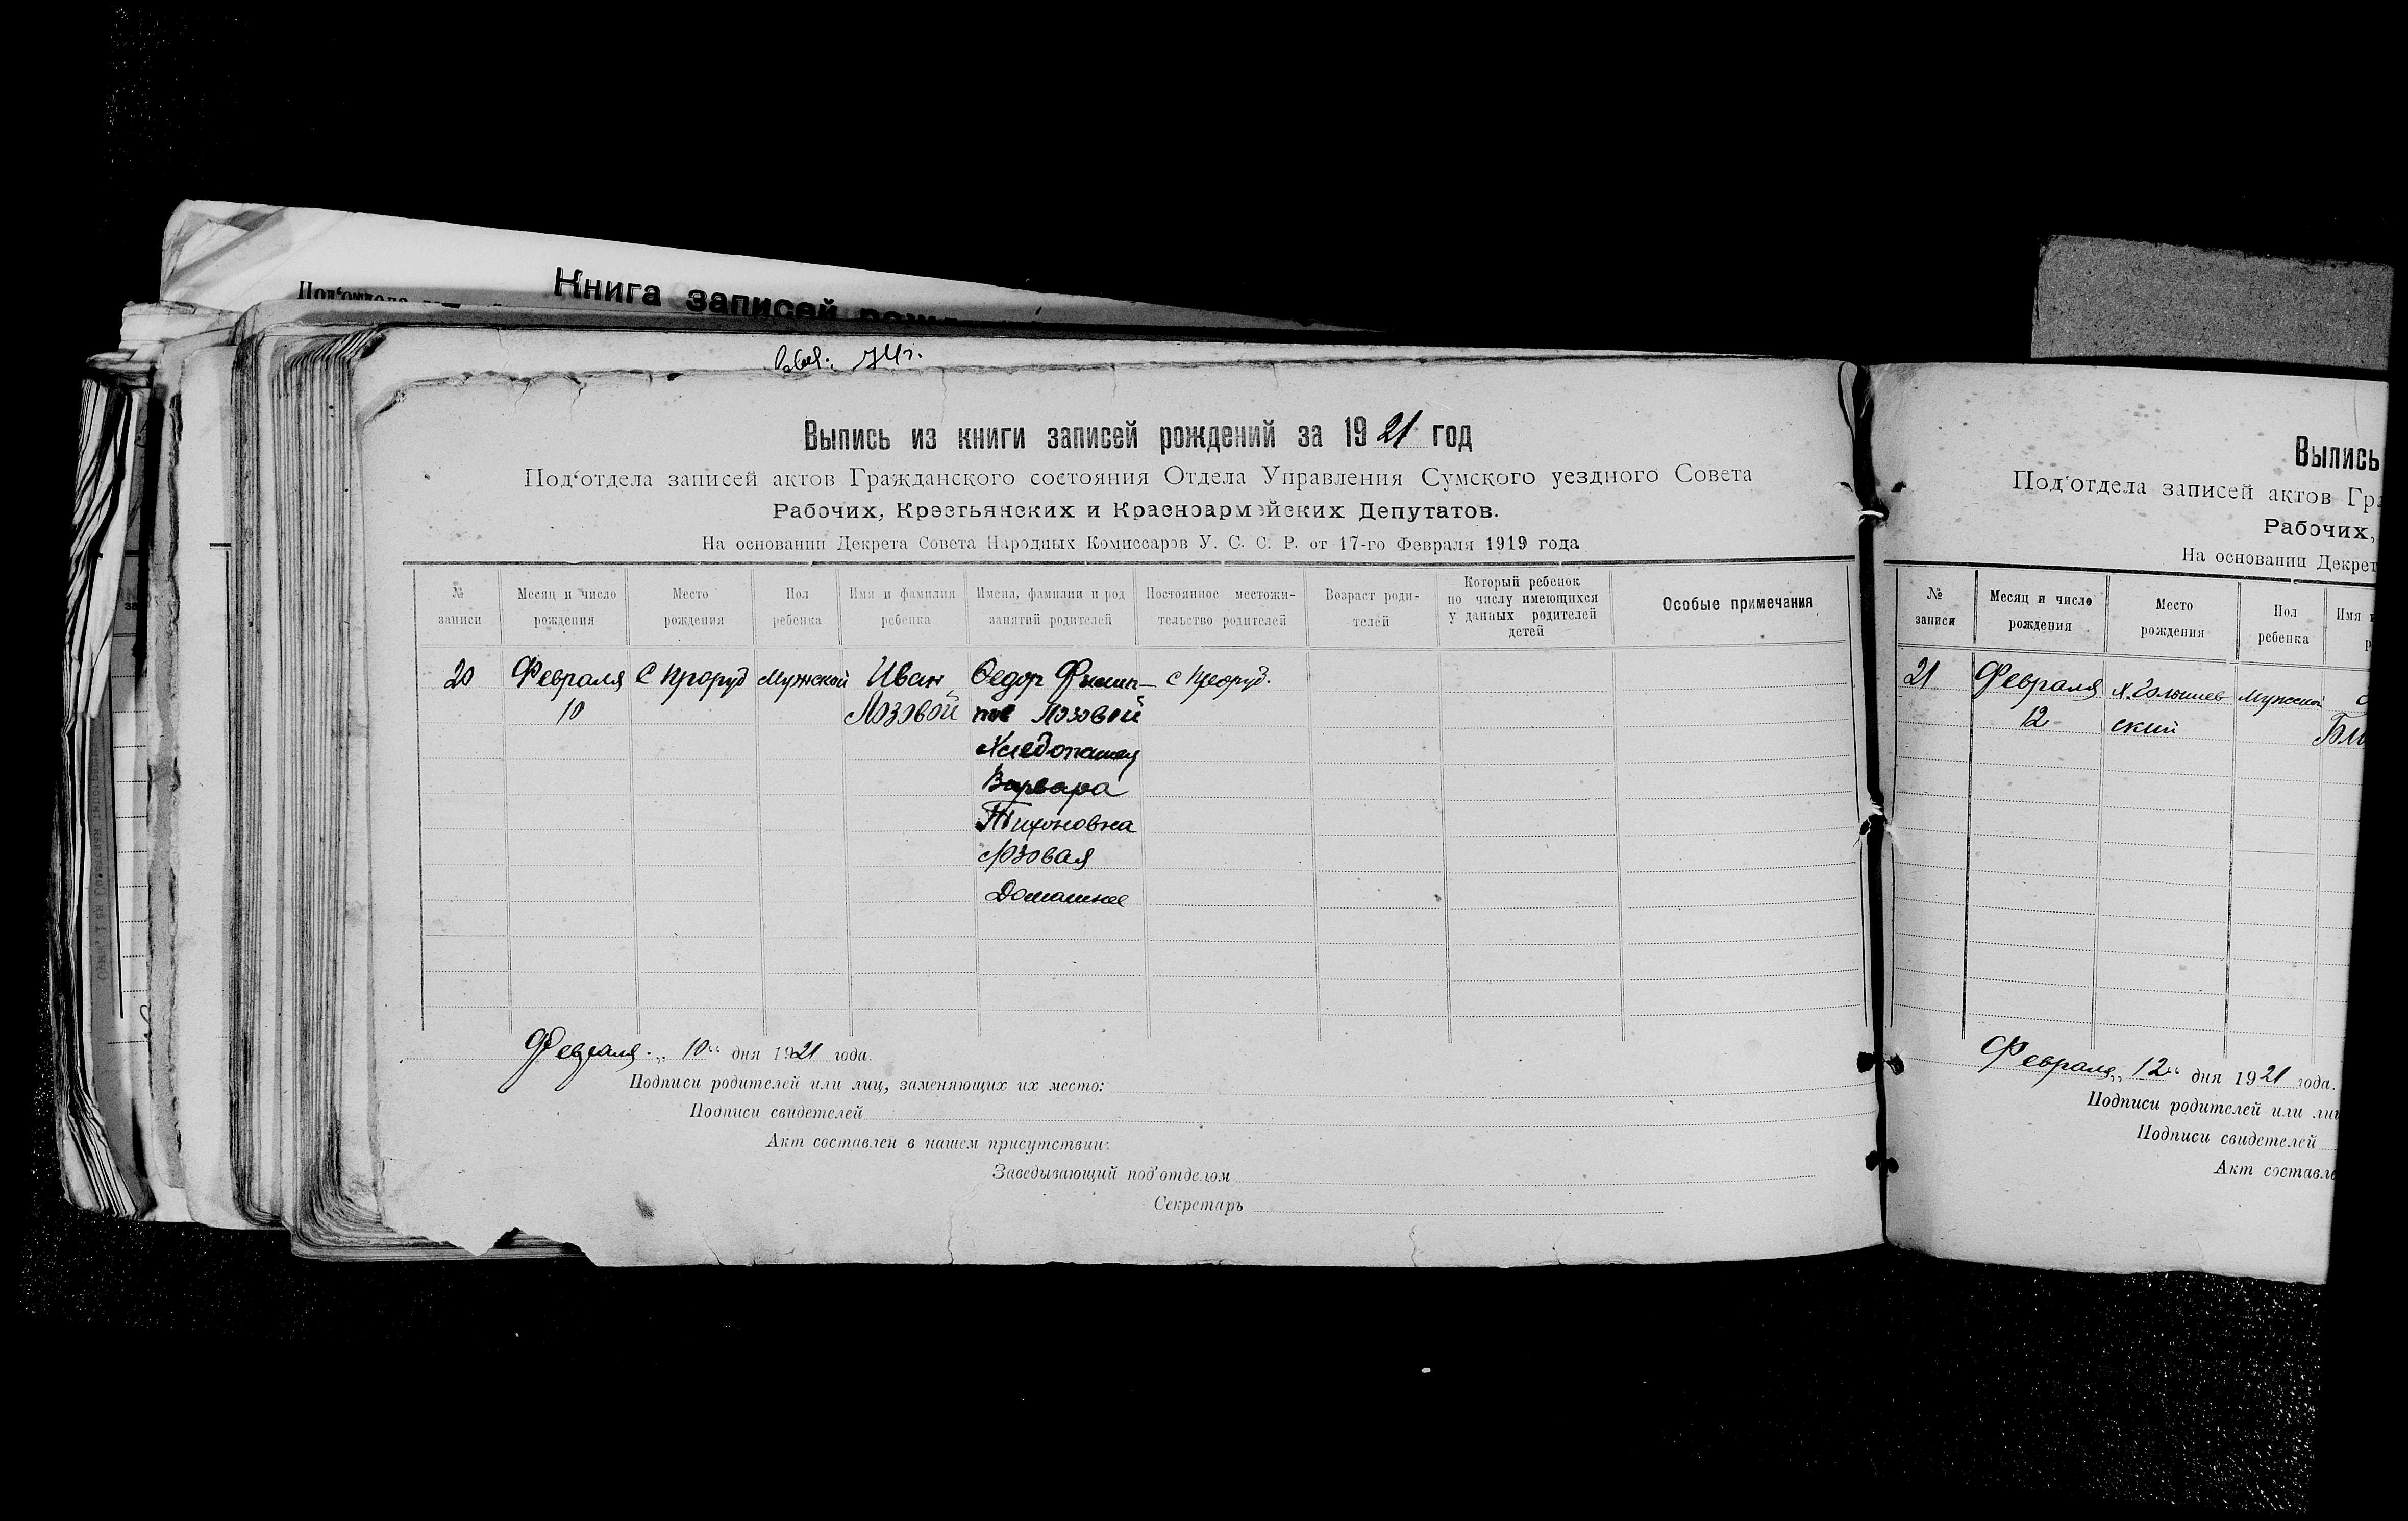 Книга записей
Выпись из книги записей рождений за 1921 год
Под‘отдела записей актов Гражданского состояния Отдела Управления Сумского уездного Совета
Рабочих, Крестьянских и Красноармейских Депутатов.
На основании Декрета Совета Народных Комиссаров У. С. С. Р. от 17-го Февраля 1919 года
№ записи
Месяц и число рождения
Место рождения
Пол ребенка
Имя и фамилия ребенка
Имена, фамилии и род занятий родителей
Постоянное местожи-
тельство родителей
Возраст роди-
телей
Который ребенок
по числу имеющихся
у данных родителей
детей
Особые примечания
20 Февраля С Проруб Мужской Иван Федор Филип- с Проруб.
10 Лозовой пов Лозовой
Хлебопашец
Варвара
Тихоновна
Лозовая
Домашнее
Февраля „ 10“ дня 1921 года.
Подписи родителей или лиц, заменяющих их место:
Подписи свидетелей
Акт составлен в нашем присутствии:
Заведывающий под‘отделом
Секретарь
Выпись
Под‘отдела записей актов Гра
Рабочих,
На основании Декрет
№ записи
Месяц и число рождения
Место рождения
Пол ребенка
Имя
21 Февраля Мужской
12 ский
Февраля „ 12“ дня 1921 года.
Подписи родителей или лиц
Подписи свидетелей
Акт составле